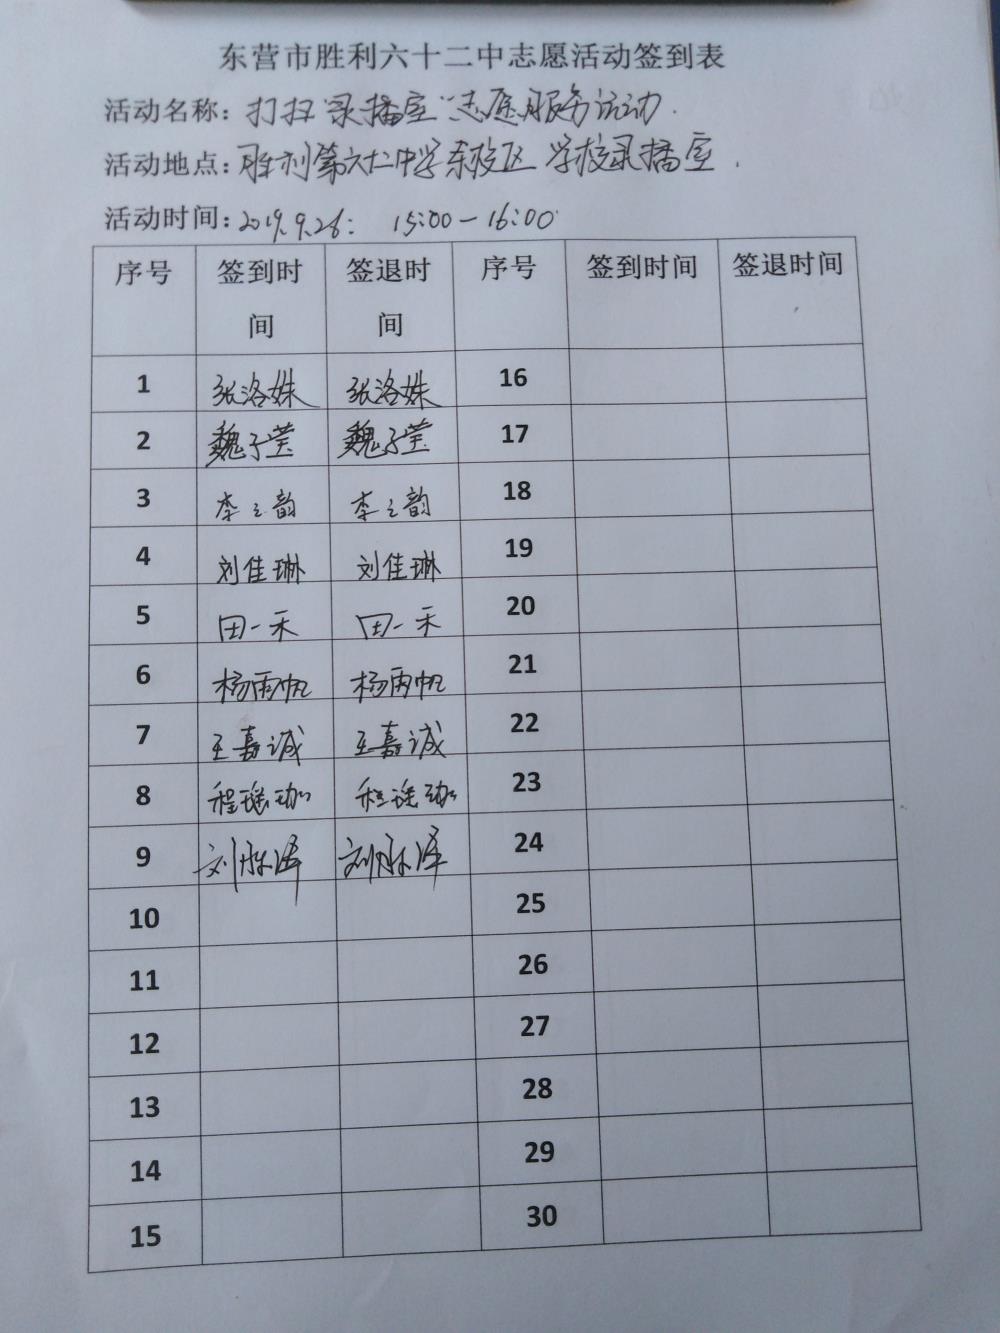 东营市胜利六十二中志愿活动签到表
活动名称：打扫"录播室"志愿服务活动.
活动地点：胜利第六十二中学东校区 学校录播室.
活动时间：2019.9.26: 15:00-16:00
序号 签到时间 签退时间 序号 签到时间 签退时间
1 张洛姝 张洛姝 16
2 魏子莹 魏子莹 17
3 李之韵 李之韵 18
4 刘佳琳 刘佳琳 19
5 田一禾 田一禾 20
6 杨雨帆 杨雨帆 21
7 王嘉诚 王嘉诚 22
8 程瑶珈 程瑶珈 23
9 刘 泽 刘 泽 24
10 25
11 26
12 27
13 28
14 29
15 30